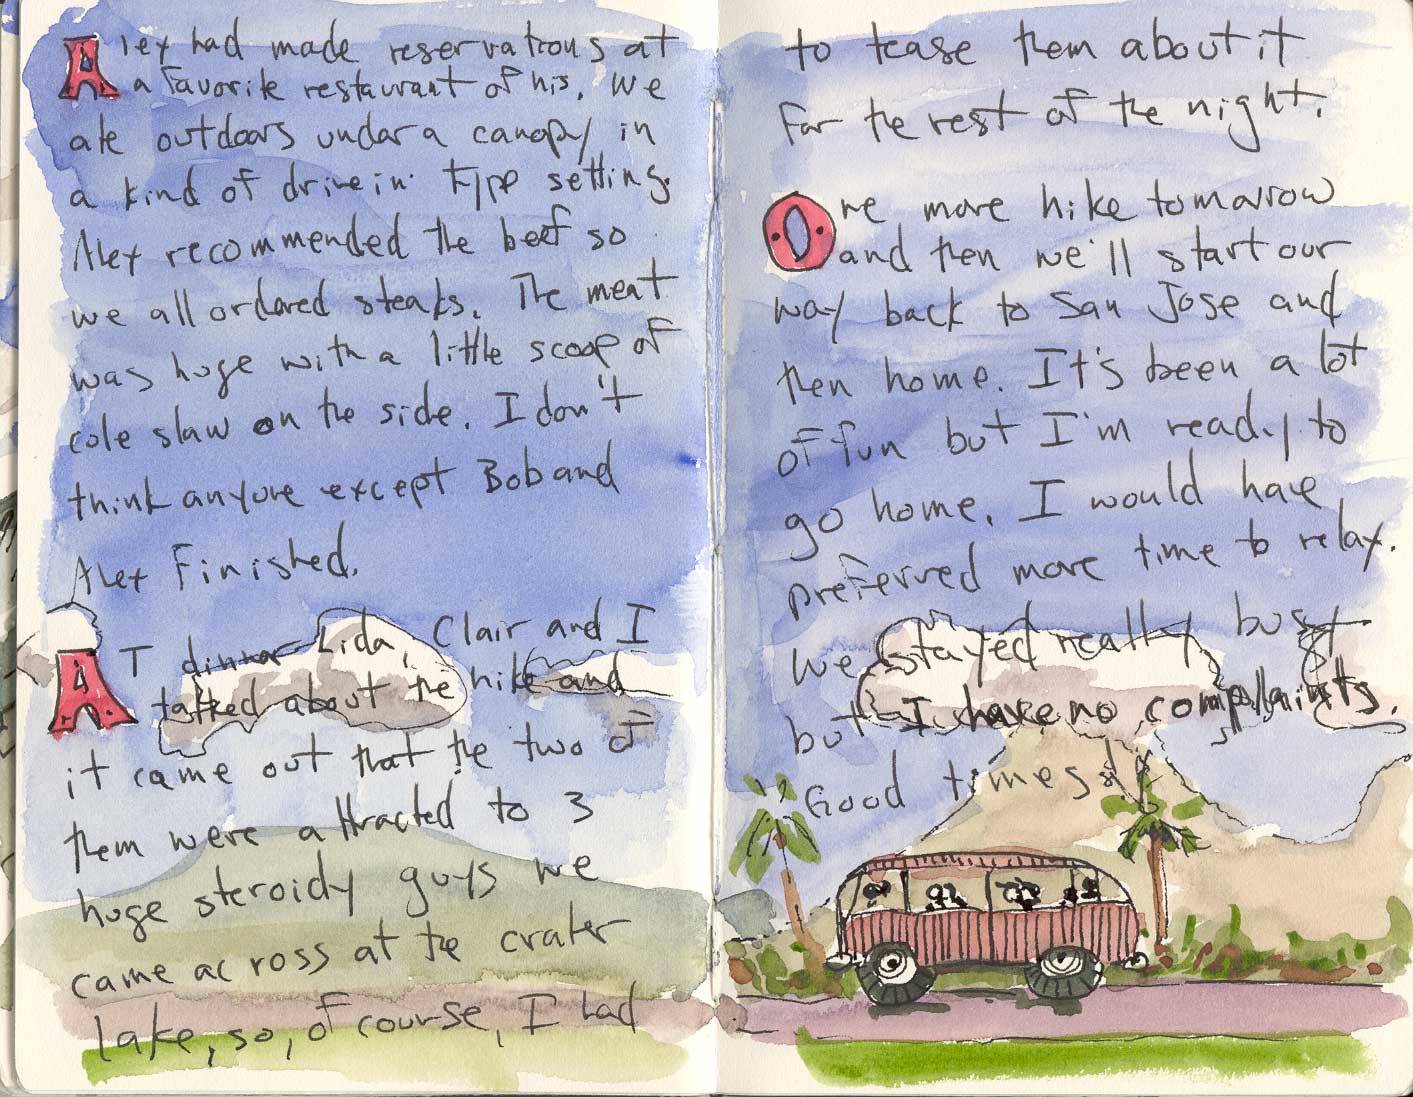 Alex had made reservations at
a favorite restaurant of his. We
ate outdoors under a canopy in
a kind of drive in type setting.
Alex recommended the beef so
we all ordered steaks. The meat
was huge with a little scoop of
cole slaw on the side. I don't
think anyone except Bob and
Alex Finished.
AT dinner Lida, Clair and I
talked about the hike and
it came out that the two of
them were attracted to 3
huge steroidy guys we
came across at the crater
lake, so, of course, I had
to tease them about it
for the rest of the night.
One more hike tomorrow
and then we'll start our
way back to San Jose and
then home. It's been a lot
of fun but I'm ready to
go home. I would have
preferred more time to relax.
We stayed really busy
but I have no complaints.
Good times!